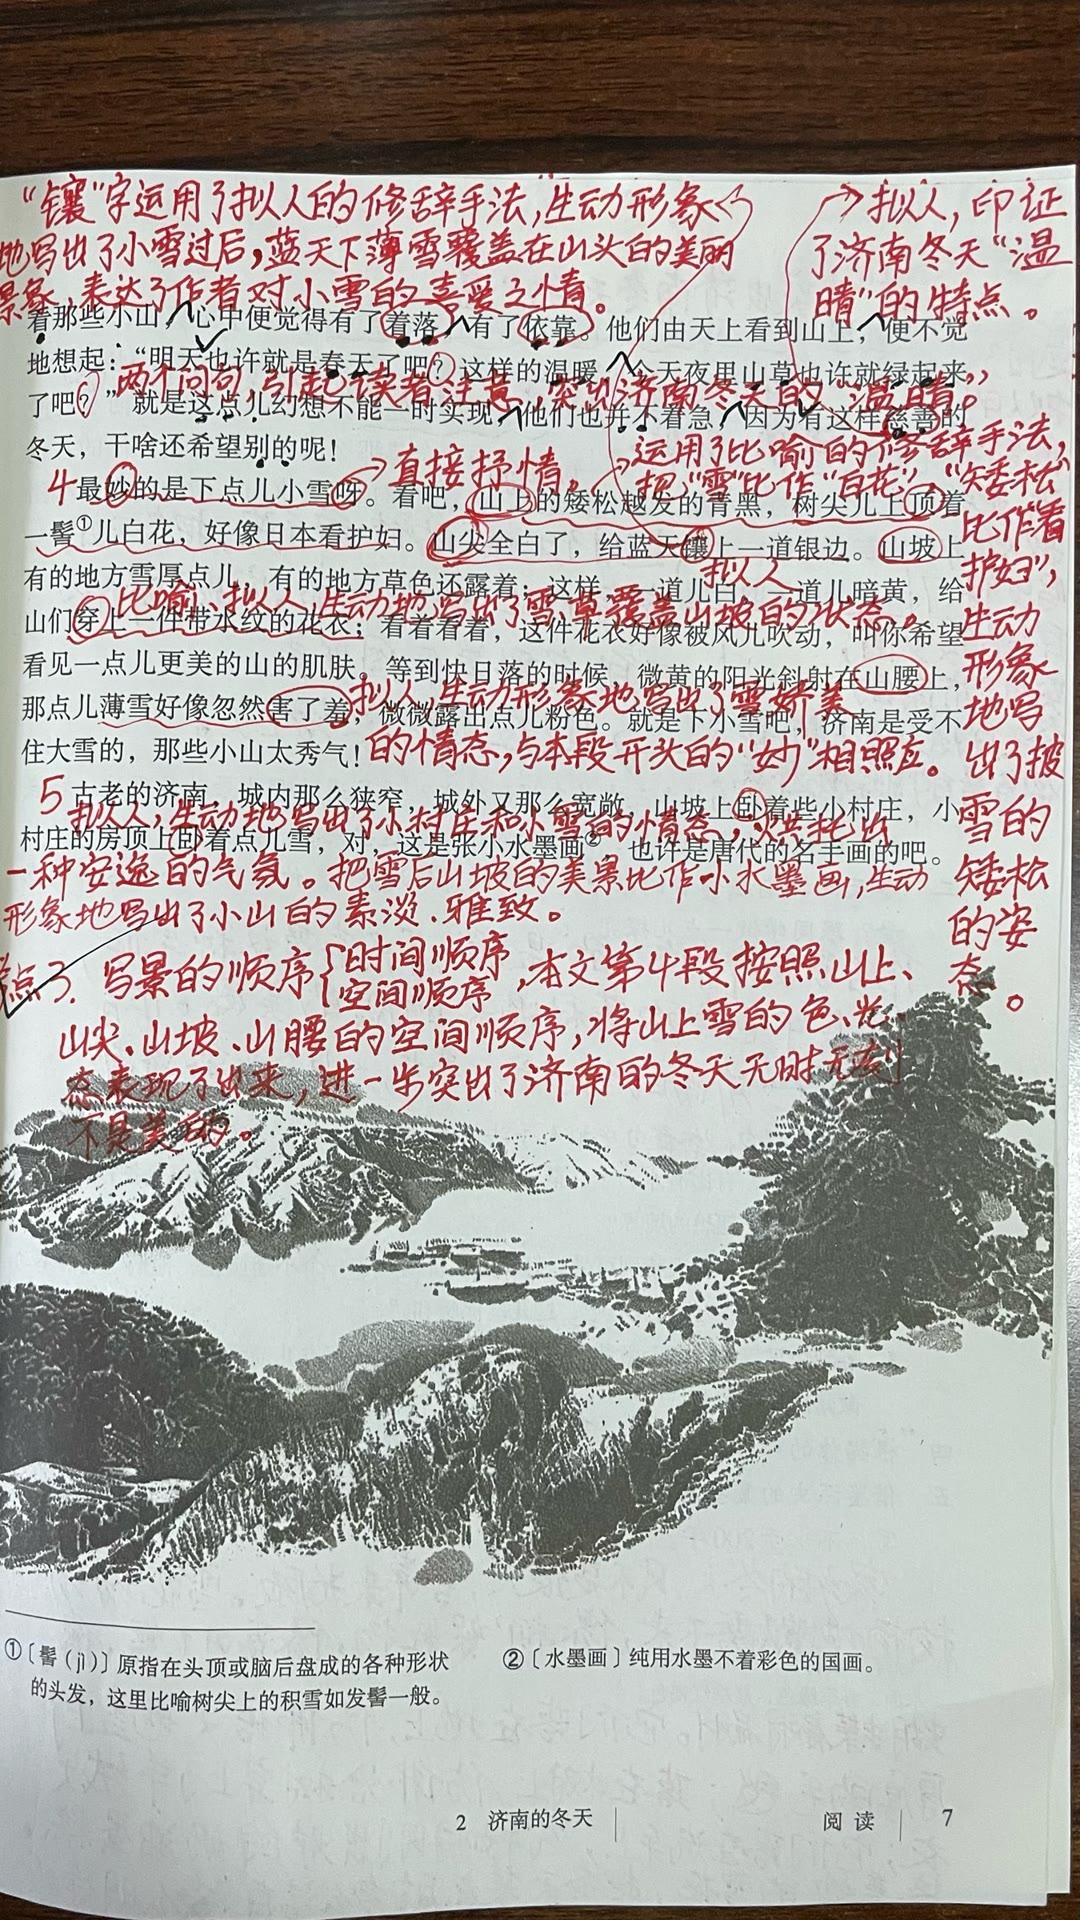 “镶”字运用了拟人的修辞手法,生动形象
地写出了小雪过后,蓝天下薄雪覆盖在山头的美丽
景象,表达了作者对小雪的喜爱之情。
拟人,印证
了济南冬天“温
晴”的特点。
看那些小山，心中便觉得有了着落，有了依靠。他们由天上看到山上，便不觉
地想起：“明天也许就是春天了吧？这样的温暖，今天夜里山草也许就绿起来
了吧？”就是这点儿幻想不能一时实现，他们也并不着急，因为有这样慈善的
冬天，干啥还希望别的呢！
两个问句,引起读者注意,突出济南冬天的“温晴”。
直接抒情。
运用了比喻的修辞手法,
把“雪”比作“白花”,“矮松”
比作看
护妇”,
生动
形象
地写
出了披
雪的
矮松
的姿
态。
4 最妙的是下点儿小雪呀。看吧，山上的矮松越发的青黑，树尖儿上顶着
一髻①儿白花，好像日本看护妇。山尖全白了，给蓝天镶上一道银边。山坡上，
有的地方雪厚点儿，有的地方草色还露着；这样，一道儿白，一道儿暗黄，给
山们穿上一件带水纹的花衣；看着看着，这件花衣好像被风儿吹动，叫你希望
看见一点儿更美的山的肌肤。等到快日落的时候，微黄的阳光斜射在山腰上，
那点儿薄雪好像忽然害了羞，微微露出点儿粉色。就是下小雪吧，济南是受不
住大雪的，那些小山太秀气！
拟人
比喻、拟人,生动地写出了雪、草覆盖山坡的状态。
拟人,生动形象地写出了雪娇美
的情态,与本段开头的“妙”相照应。
5 古老的济南，城内那么狭窄，城外又那么宽敞，山坡上卧着些小村庄，小
村庄的房顶上卧着点儿雪，对，这是张小水墨画②，也许是唐代的名手画的吧。
拟人,生动地写出了小村庄和小雪的情态,烘托出
一种安逸的气氛。把雪后山坡的美景比作小水墨画,生动
形象地写出了小山的素淡、雅致。
点3. 写景的顺序{时间顺序
空间顺序,本文第4段按照山上、
山尖、山坡、山腰的空间顺序,将山上雪的色、光、
态表现了出来,进一步突出了济南的冬天无时无刻
不是美的。
①〔髻（jì）〕原指在头顶或脑后盘成的各种形状
的头发，这里比喻树尖上的积雪如发髻一般。
②〔水墨画〕纯用水墨不着彩色的国画。
2 济南的冬天
阅读 7